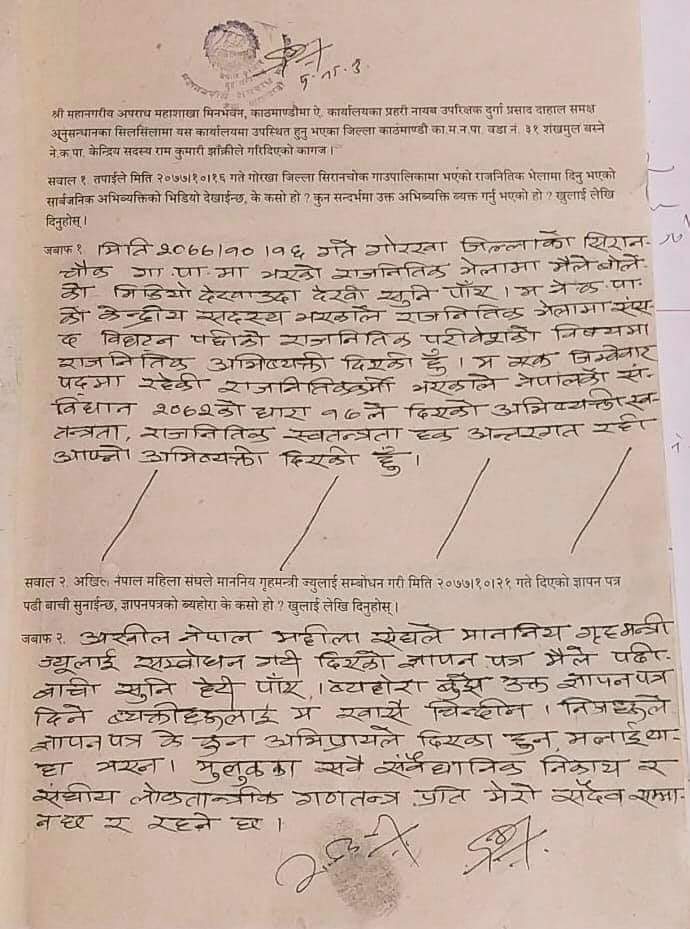 श्री महानगरीय अपराध महाशाखा मिनभवन, काठमाण्डौमा ऐ. कार्यालयका प्रहरी नायब उपरिक्षक दुर्गा प्रसाद दाहाल समक्ष
अनुसन्धानका सिलसिलामा यस कार्यालयमा उपस्थित हुनु भएका जिल्ला काठमाण्डौ का.म.न.पा. वडा नं. ३१ शंखमुल बस्ने
ने.क.पा. केन्द्रिय सदस्य राम कुमारी झाँक्रीले गरिदिएको कागज ।
सवाल १. तपाईले मिति २०७७।१०।१६ गते गोरखा जिल्ला सिरानचोक गाउपालिकामा भएको राजनितिक भेलामा दिनु भएको
सार्वजनिक अभिव्यक्तिको भिडियो देखाईन्छ, के कसो हो ? कुन सन्दर्भमा उक्त अभिव्यक्ति ब्यक्त गर्नु भएको हो ? खुलाई लेखि
दिनुहोस् ।
जबाफ १. मिति २०७७।१०।१६ गते गोरखा जिल्लाको सिरान-
चौक गा.पा.मा भएको राजनितिक भेलामा मैले बोले-
को भिडियो देखाउदा देखी सुनि पाँए । म ने.क.पा.
को केन्द्रीय सदस्य भएकोले राजनितिक भेलामा संस-
द विघटन पछीको राजनितिक परीवेशको विषयमा
राजनितिक अभिव्यक्ती दिएको हुँ । म एक जिम्वेवार
पदमा रहेकी राजनितिककर्मी भएकाले नेपालको सं-
विधान २०७२को धारा १७ले दिएको अभिव्यक्ती स्व-
तन्त्रता, राजनितिक स्वतन्त्रता हक अन्तरगत रही
आफ्नो अभिव्यक्ती दिएको हुँ ।
सवाल २. अखिल नेपाल महिला संघले माननिय गृहमन्त्री ज्युलाई सम्बोधन गरी मिति २०७७।१०।२१ गते दिएको ज्ञापन पत्र
पढी बाची सुनाईन्छ, ज्ञापनपत्रको ब्यहोरा के कसो हो ? खुलाई लेखि दिनुहोस् ।
जबाफ २. अखील नेपाल महीला संघले माननिय गृहमन्त्री
ज्यूलाई सम्वोधन गरी दिएको ज्ञापन पत्र मैले पढी-
बाची सुनि हेरी पाँए । व्यहोरा बुझें उक्त ज्ञापनपत्र
दिने व्यक्तीहरुलाई म खासै चिन्दीन । निजहरुले
ज्ञापनपत्र के कुन अभिप्रायले दिएका हुन, मलाई था-
हा भएन । मुलुकका सवै संवैधानिक निकाय र
संघीय लोकतान्त्रीक गणतन्त्र प्रति मेरो सदैव सम्मा-
न छ र रहने छ ।